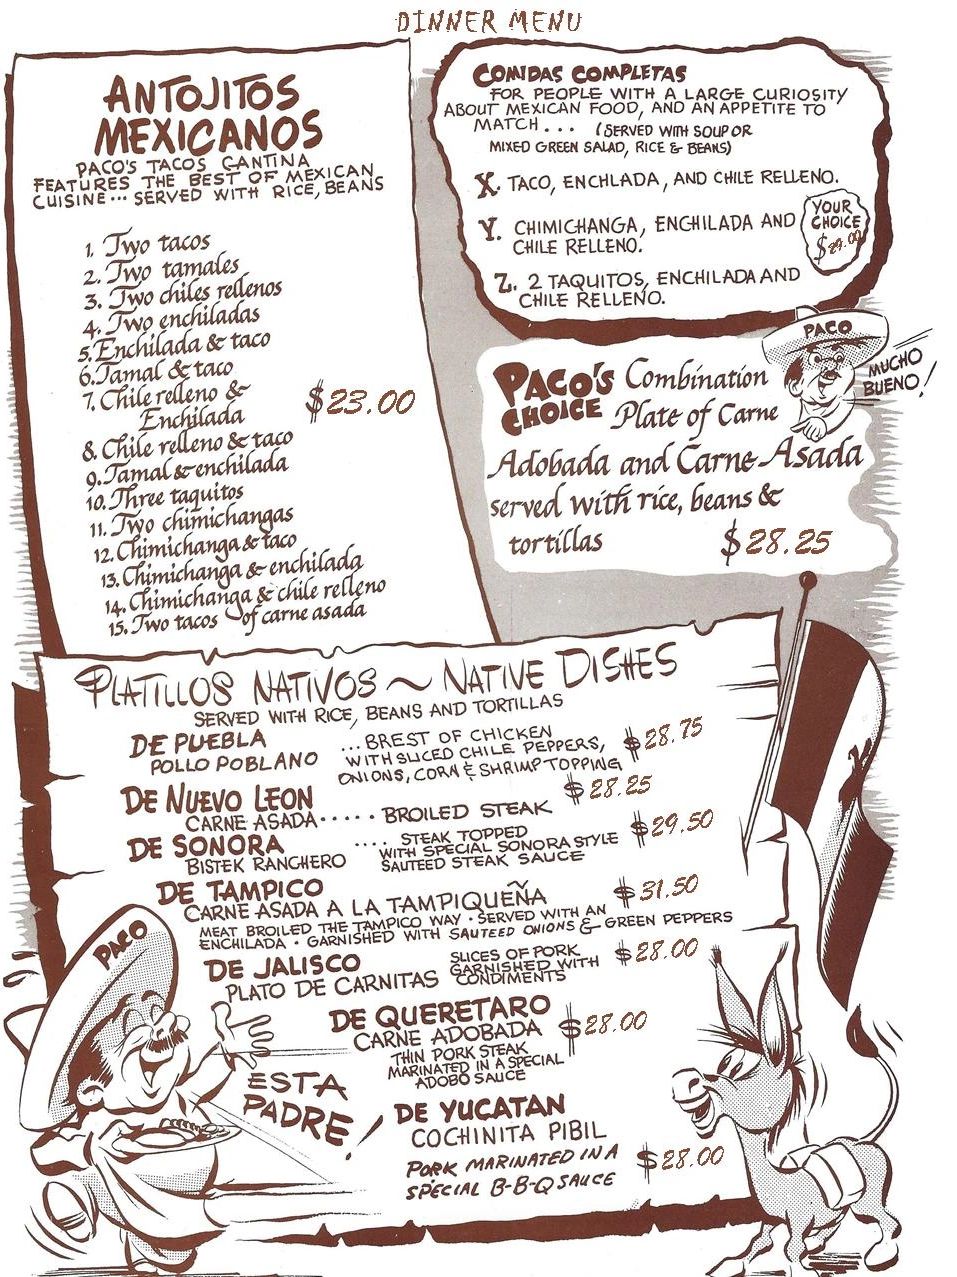 DINNER MENU
ANTOJITOS
MEXICANOS
PACO'S TACOS CANTINA
FEATURES THE BEST OF MEXICAN
CUISINE... SERVED WITH RICE, BEANS
1. Two tacos
2. Two tamales
3. Two chiles rellenos
4. Two enchiladas
5. Enchilada & taco
6. Tamal & taco
7. Chile relleno &
Enchilada
$23.00
8. Chile relleno & taco
9. Tamal & enchilada
10. Three taquitos
11. Two chimichangas
12. Chimichanga & taco
13. Chimichanga & enchilada
14. Chimichanga & chile relleno
15. Two tacos of carne asada
COMIDAS COMPLETAS
FOR PEOPLE WITH A LARGE CURIOSITY
ABOUT MEXICAN FOOD, AND AN APPETITE TO
MATCH... (SERVED WITH SOUP OR
MIXED GREEN SALAD, RICE & BEANS)
X. TACO, ENCHLADA, AND CHILE RELLENO.
Y. CHIMICHANGA, ENCHILADA AND
CHILE RELLENO.
Z. 2 TAQUITOS, ENCHILADA AND
CHILE RELLENO.
YOUR
CHOICE
$29.00
PACO
MUCHO
BUENO!
PACO'S
CHOICE
Combination
Plate of Carne
Adobada and Carne Asada
served with rice, beans &
tortillas $28.25
PLATILLOS NATIVOS ~ NATIVE DISHES
SERVED WITH RICE, BEANS AND TORTILLAS
DE PUEBLA
POLLO POBLANO
...BREST OF CHICKEN
WITH SLICED CHILE PEPPERS,
ONIONS, CORN & SHRIMP TOPPING
$28.75
DE NUEVO LEON
CARNE ASADA..... BROILED STEAK
$28.25
DE SONORA
BISTEK RANCHERO
.... STEAK TOPPED
WITH SPECIAL SONORA STYLE
SAUTEED STEAK SAUCE
$29.50
DE TAMPICO
CARNE ASADA A LA TAMPIQUEÑA
$31.50
MEAT BROILED THE TAMPICO WAY · SERVED WITH AN
ENCHILADA · GARNISHED WITH SAUTEED ONIONS & GREEN PEPPERS
DE JALISCO
PLATO DE CARNITAS
SLICES OF PORK
GARNISHED WITH
CONDIMENTS
$28.00
DE QUERETARO
CARNE ADOBADA
$28.00
THIN PORK STEAK
MARINATED IN A SPECIAL
ADOBO SAUCE
PACO
ESTA
PADRE!
DE YUCATAN
COCHINITA PIBIL
PORK MARINATED IN A
SPECIAL B-B-Q SAUCE
$28.00